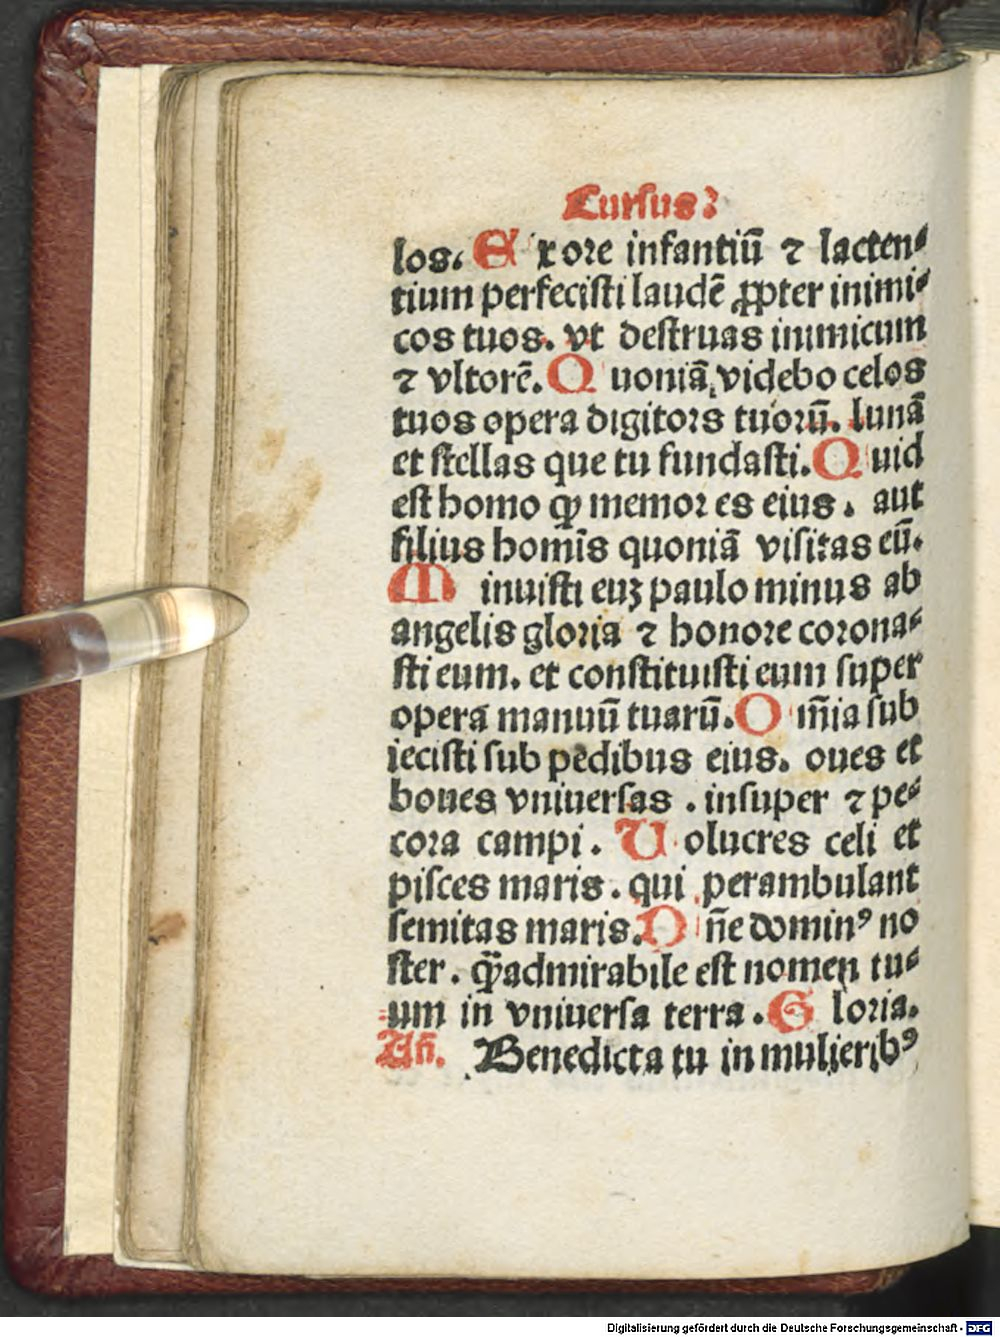 Cursus
los. Ex ore infantiū ⁊ lacten⸗
tium perfecisti laudē ꝓpter inimi⸗
cos tuos. vt destruas inimicum
⁊ vltorē. Quoniā videbo celos
tuos opera digitoꝝ tuoꝛū. lunā
et stellas que tu fundasti. Quid
est homo ꝙ memoꝛ es eius. aut
filius homīs quoniā visitas eū.
Minuisti euꝫ paulo minus ab
angelis gloꝛia ⁊ honoꝛe coꝛona⸗
sti eum. et constituisti eum super
opera manuū tuarū. Om̄ia sub
iecisti sub pedibus eius. oues et
boues vniuersas . insuper ⁊ pe⸗
coꝛa campi. Uolucres celi et
pisces maris. qui perambulant
semitas maris. Dn̄e dominꝰ no
ster. q̄ admirabile est nomen tu⸗
um in vniuersa terra. Gloꝛia.
An̄. Benedicta tu in mulieribꝰ
Digitalisierung gefördert durch die Deutsche Forschungsgemeinschaft - DFG